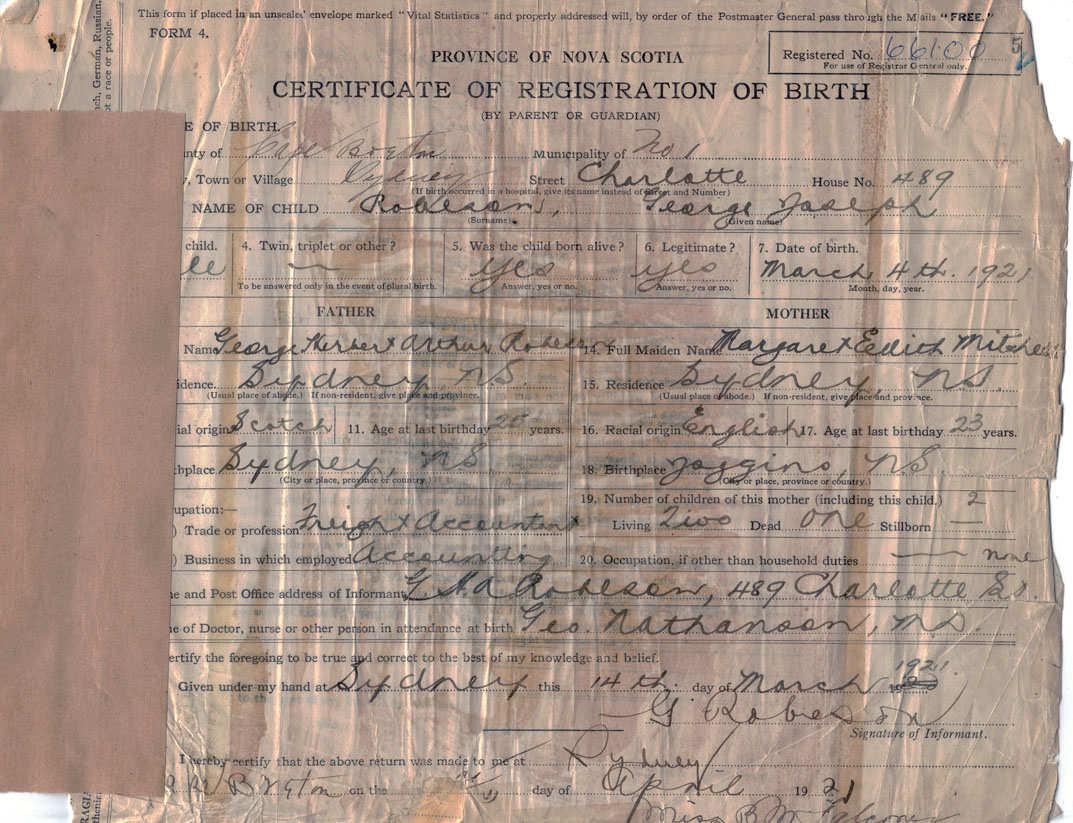 This form if placed in an unsealed envelope marked "Vital Statistics" and properly addressed will, by order of the Postmaster General pass through the Mails "FREE."
FORM 4.
PROVINCE OF NOVA SCOTIA
Registered No. 66100 5
For use of Registrar General only.
CERTIFICATE OF REGISTRATION OF BIRTH
(BY PARENT OR GUARDIAN)
E OF BIRTH.
nty of Cape Breton Municipality of No 1
, Town or Village Sydney Street Charlotte House No. 489
(If birth occurred in a hospital, give its name instead of Street and Number)
NAME OF CHILD Robeson, George Joseph
(Surname) (Given name)
child. 4. Twin, triplet or other? 5. Was the child born alive? 6. Legitimate? 7. Date of birth.
le — yes yes March 4th. 1921
To be answered only in the event of plural birth. Answer, yes or no. Answer, yes or no. Month, day, year.
FATHER MOTHER
Name George Herbert Arthur Robeson 14. Full Maiden Name Margaret Edith Mitche
idence. Sydney, NS. 15. Residence Sydney, NS.
(Usual place of abode.) If non-resident, give place and province. (Usual place of abode.) If non-resident, give place and province.
ial origin Scotch 11. Age at last birthday 25 years. 16. Racial origin English 17. Age at last birthday 23 years.
thplace Sydney, NS 18. Birthplace Joggins, NS.
(City or place, province or country.) (City or place, province or country.)
upation:— 19. Number of children of this mother (including this child.) 2
) Trade or profession Freight Accountant Living Two Dead one Stillborn —
) Business in which employed Accounting 20. Occupation, if other than household duties — none
e and Post Office address of Informant G. H. A. Robeson, 489 Charlotte St.
e of Doctor, nurse or other person in attendance at birth Geo. Nathanson, M.D.
ertify the foregoing to be true and correct to the best of my knowledge and belief.
Given under my hand at Sydney this 14th. day of March 1921
G Robeson
Signature of Informant.
I hereby certify that the above return was made to me at Sydney
Breton on the day of April 1921
Miss B M Falconer
ch, German, Russian,
ot a race or people.